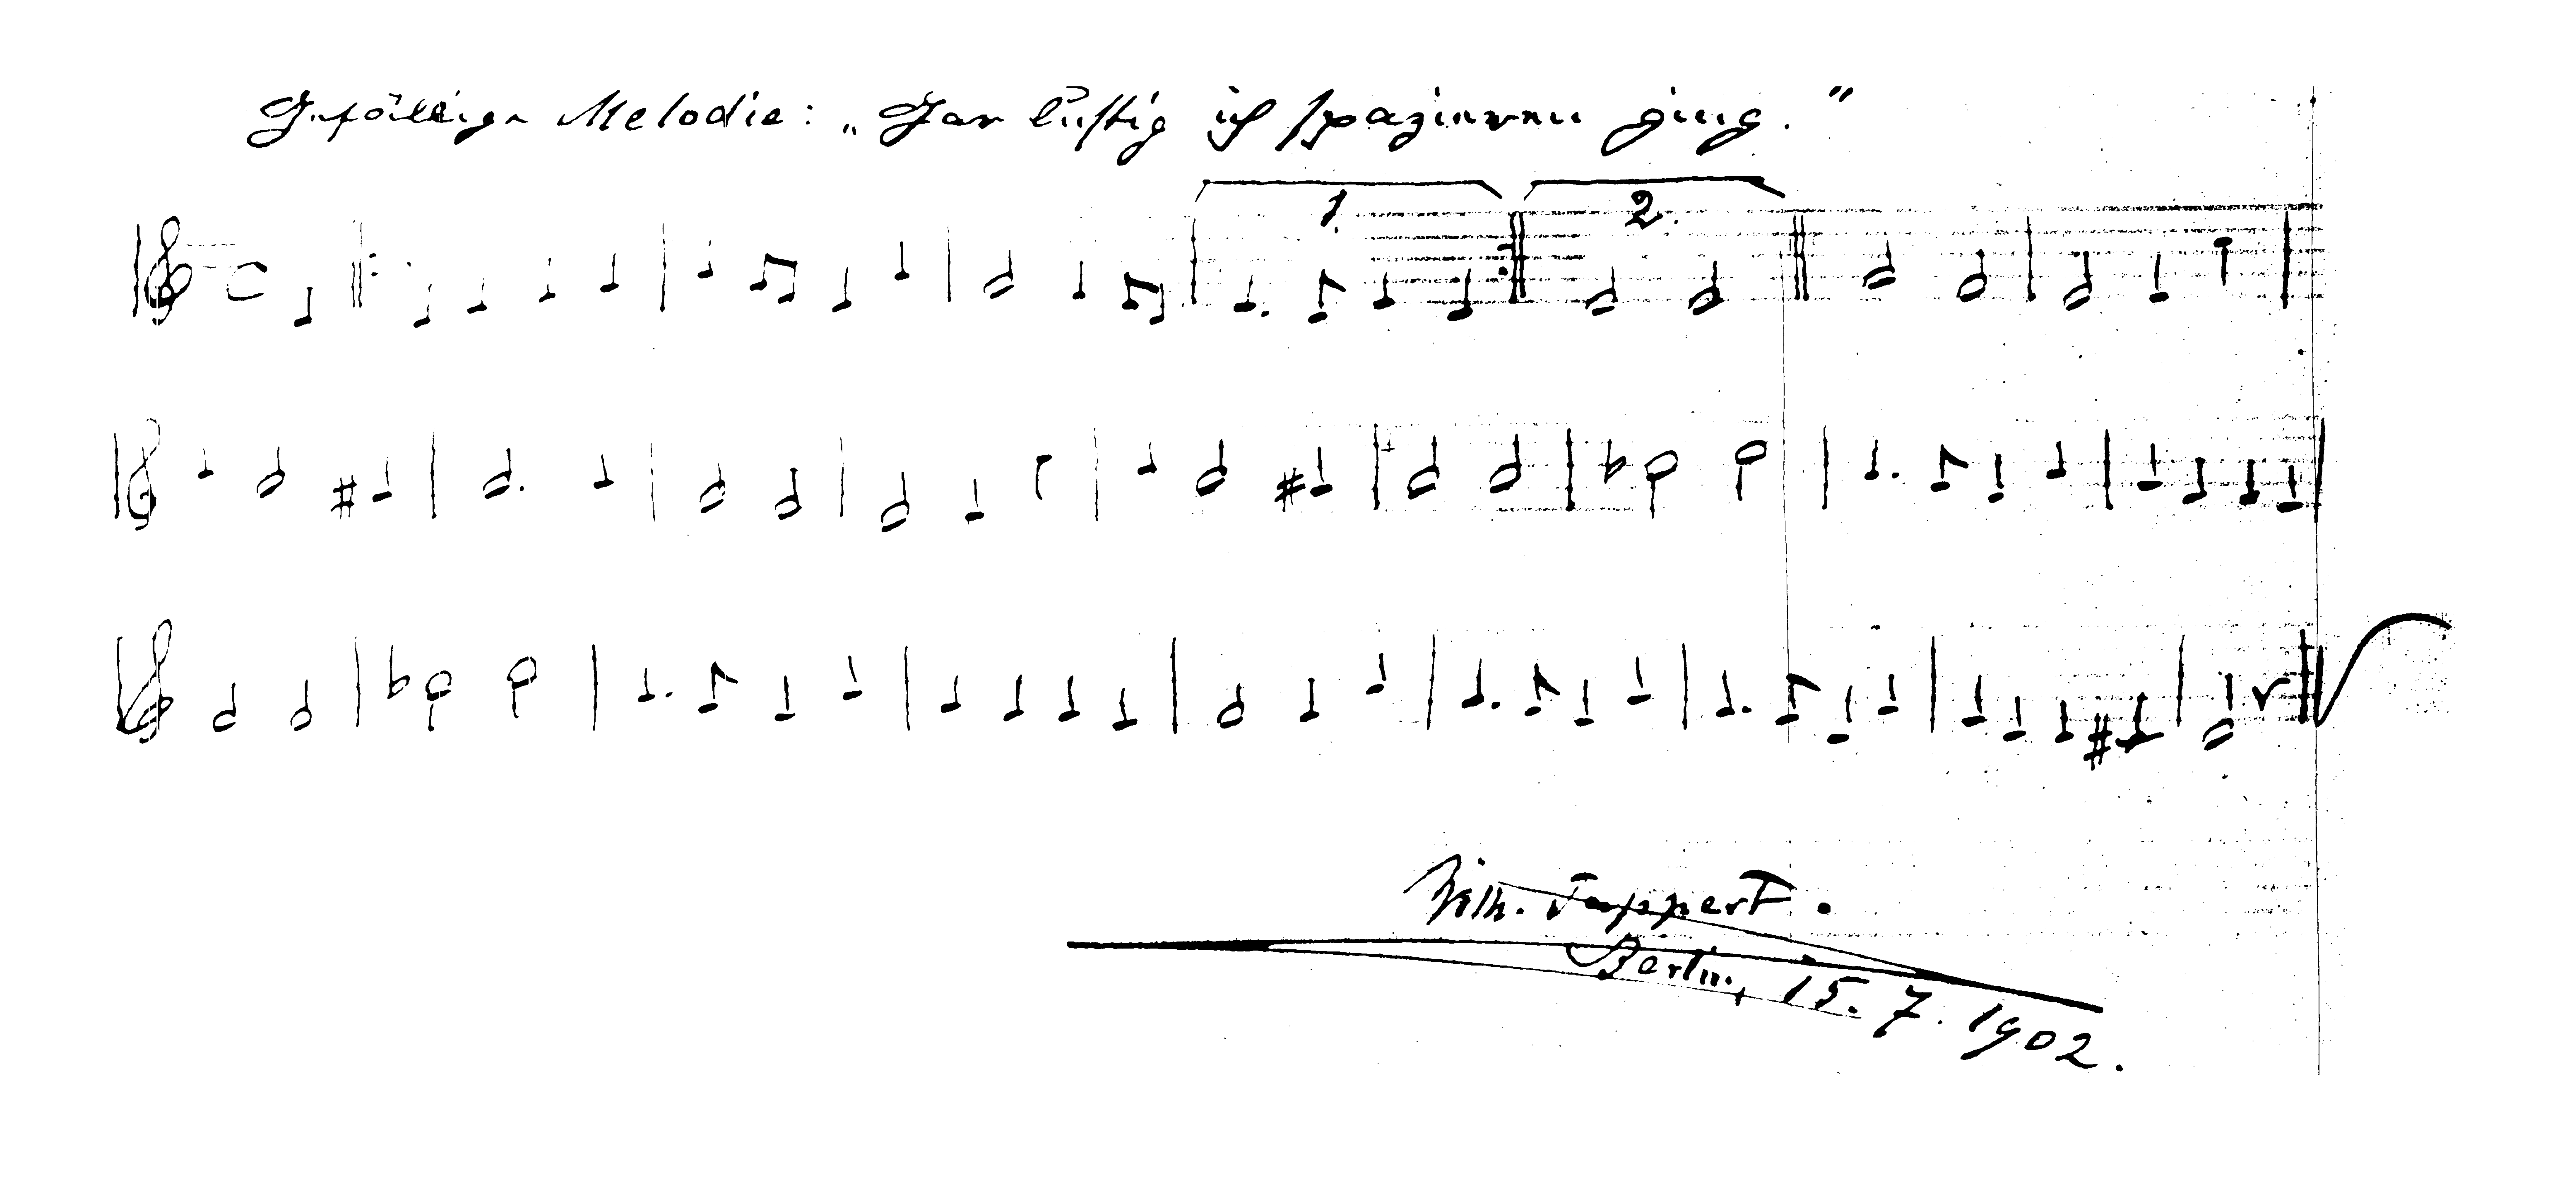 Gefällige Melodie: „Gar lustig ich spazieren ging."
1.
2.
Wilh. Tappert.
Berlin, 15. 7. 1902.